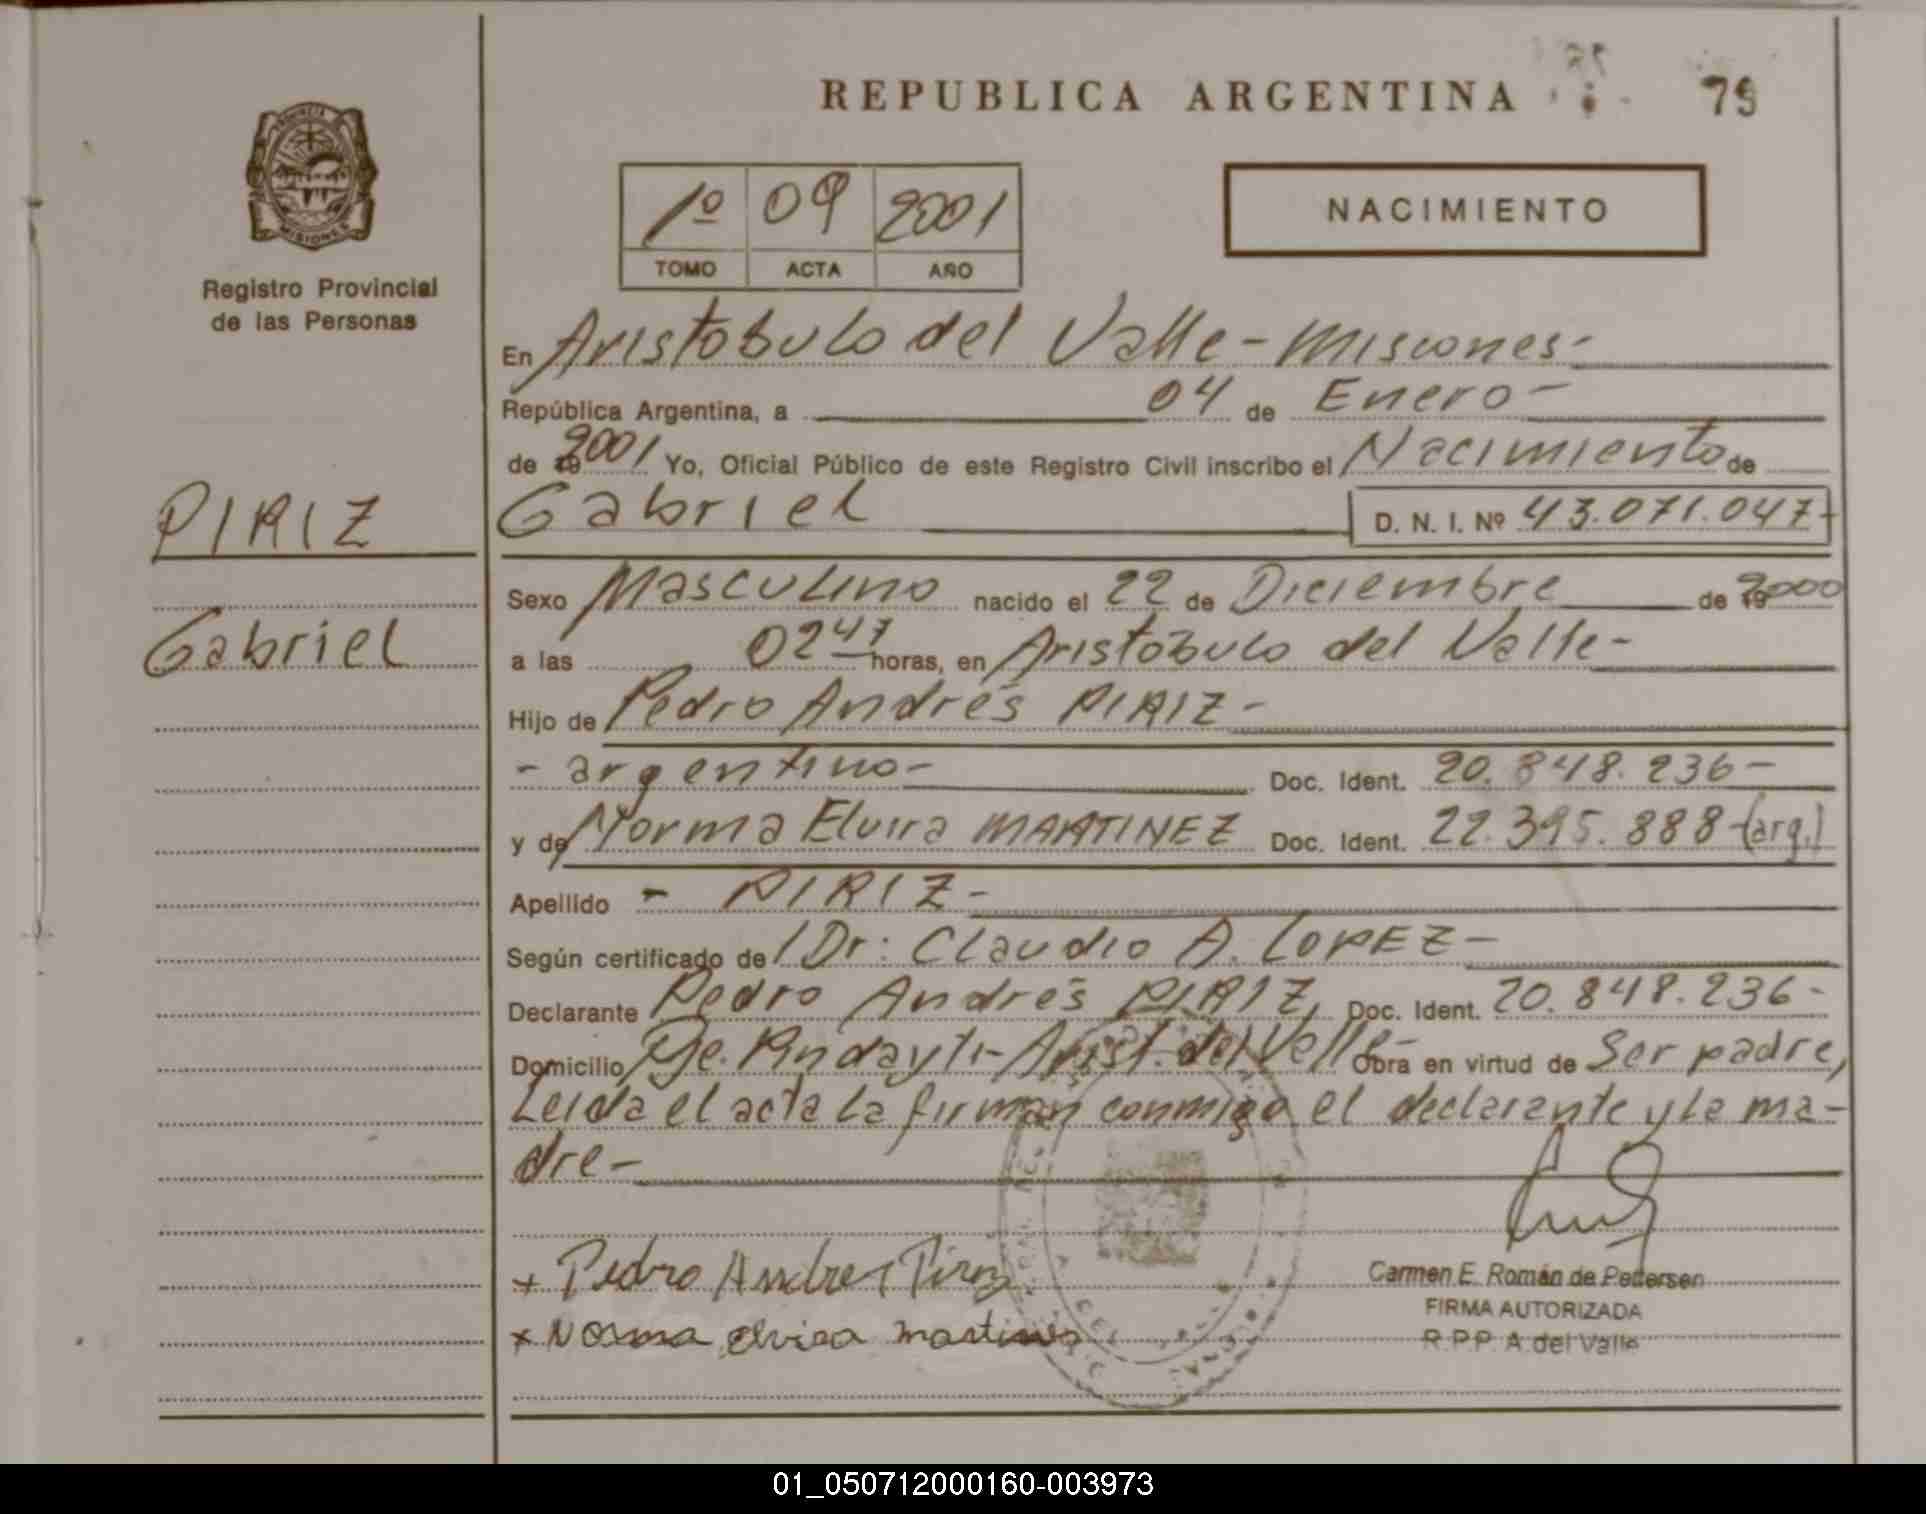 REPUBLICA ARGENTINA
79
PROVINCIA
MISIONES
Registro Provincial
de las Personas
1º 09 2001
TOMO ACTA AÑO
NACIMIENTO
En Aristobulo del Valle - Misiones -
República Argentina, a 04 de Enero -
de 2001 Yo, Oficial Público de este Registro Civil inscribo el Nacimiento de
PIRIZ
Gabriel D. N. I. Nº 43.071.047-
Sexo Masculino nacido el 22 de Diciembre de 2000
Gabriel
a las 0247 horas, en Aristóbulo del Valle -
Hijo de Pedro Andrés PIRIZ -
- argentino - Doc. Ident. 20.848.236 -
y de Norma Elvira MARTINEZ Doc. Ident. 22.395.888 - (arg.)
Apellido - PIRIZ -
Según certificado de Dr: Claudio A. LOPEZ -
Declarante Pedro Andrés PIRIZ, Doc. Ident. 20.848.236 -
Domicilio Pje. Pindayti - Arist. del Valle - Obra en virtud de Ser padre,
Leida el acta la firman conmigo el declarante y la ma-
dre -
+ Pedro Andres Piriz
x Norma elvira martinez
Carmen E. Román de Pettersen
FIRMA AUTORIZADA
R.P.P. A. del Valle
01_050712000160-003973